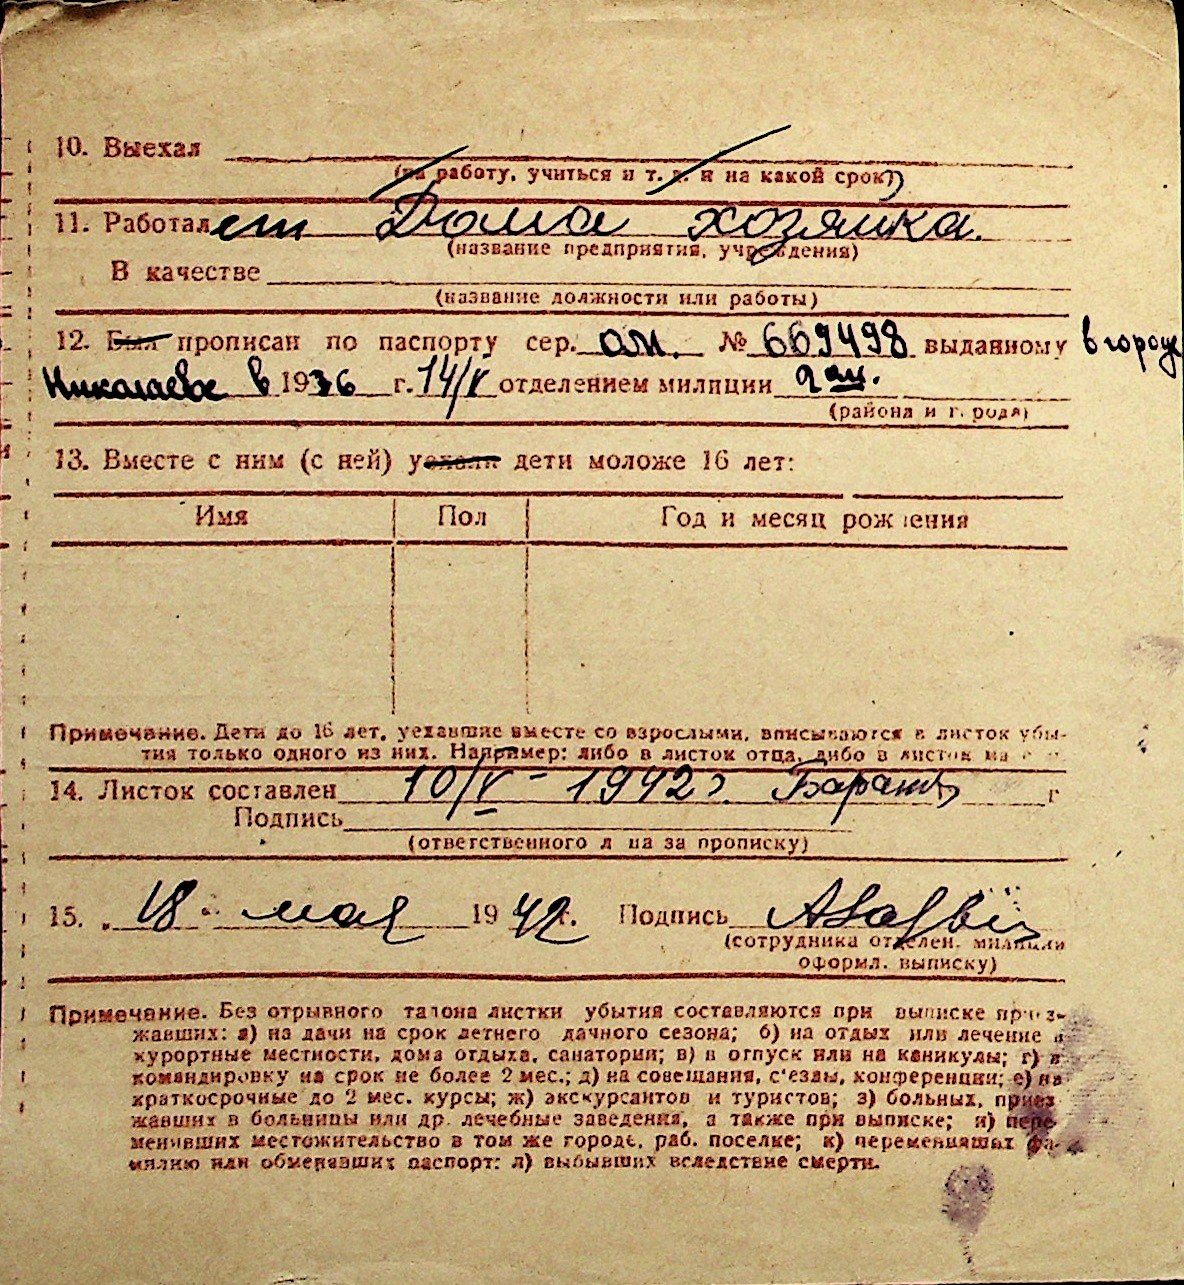 10. Выехал
(на работу, учиться и т. д. и на какой срок)
11. Работает Дома хозяйка.
(название предприятия, учреждения)
В качестве
(название должности или работы)
12. Был прописан по паспорту сер. ОМ. № 669498 выданному в городе
Николаеве в 1936 г. 14/V отделением милиции 2 ам.
(района и города)
13. Вместе с ним (с ней) уехали дети моложе 16 лет:
Имя Пол Год и месяц рождения
Примечание. Дети до 16 лет, уехавшие вместе со взрослыми, вписываются в листок убы-
тия только одного из них. Например: либо в листок отца, либо в листок
14. Листок составлен 10/V - 1942 г. г
Подпись
(ответственного лица за прописку)
15. „ 18 " мая 1942 г. Подпись
(сотрудника отделен. милиции
оформл. выписку)
Примечание. Без отрывного талона листки убытия составляются при выписке приез-
жавших: а) на дачи на срок летнего дачного сезона; б) на отдых или лечение в
курортные местности, дома отдыха, санатории; в) в отпуск или на каникулы; г) в
командировку на срок не более 2 мес.; д) на совещания, с'езды, конференции; е) на
краткосрочные до 2 мес. курсы; ж) экскурсантов и туристов; з) больных, приез
жавших в больницы или др. лечебные заведения, а также при выписке; и) пере-
менивших местожительство в том же городе, раб. поселке; к) переменивших фа-
милию или обменявших паспорт; л) выбывших вследствие смерти.